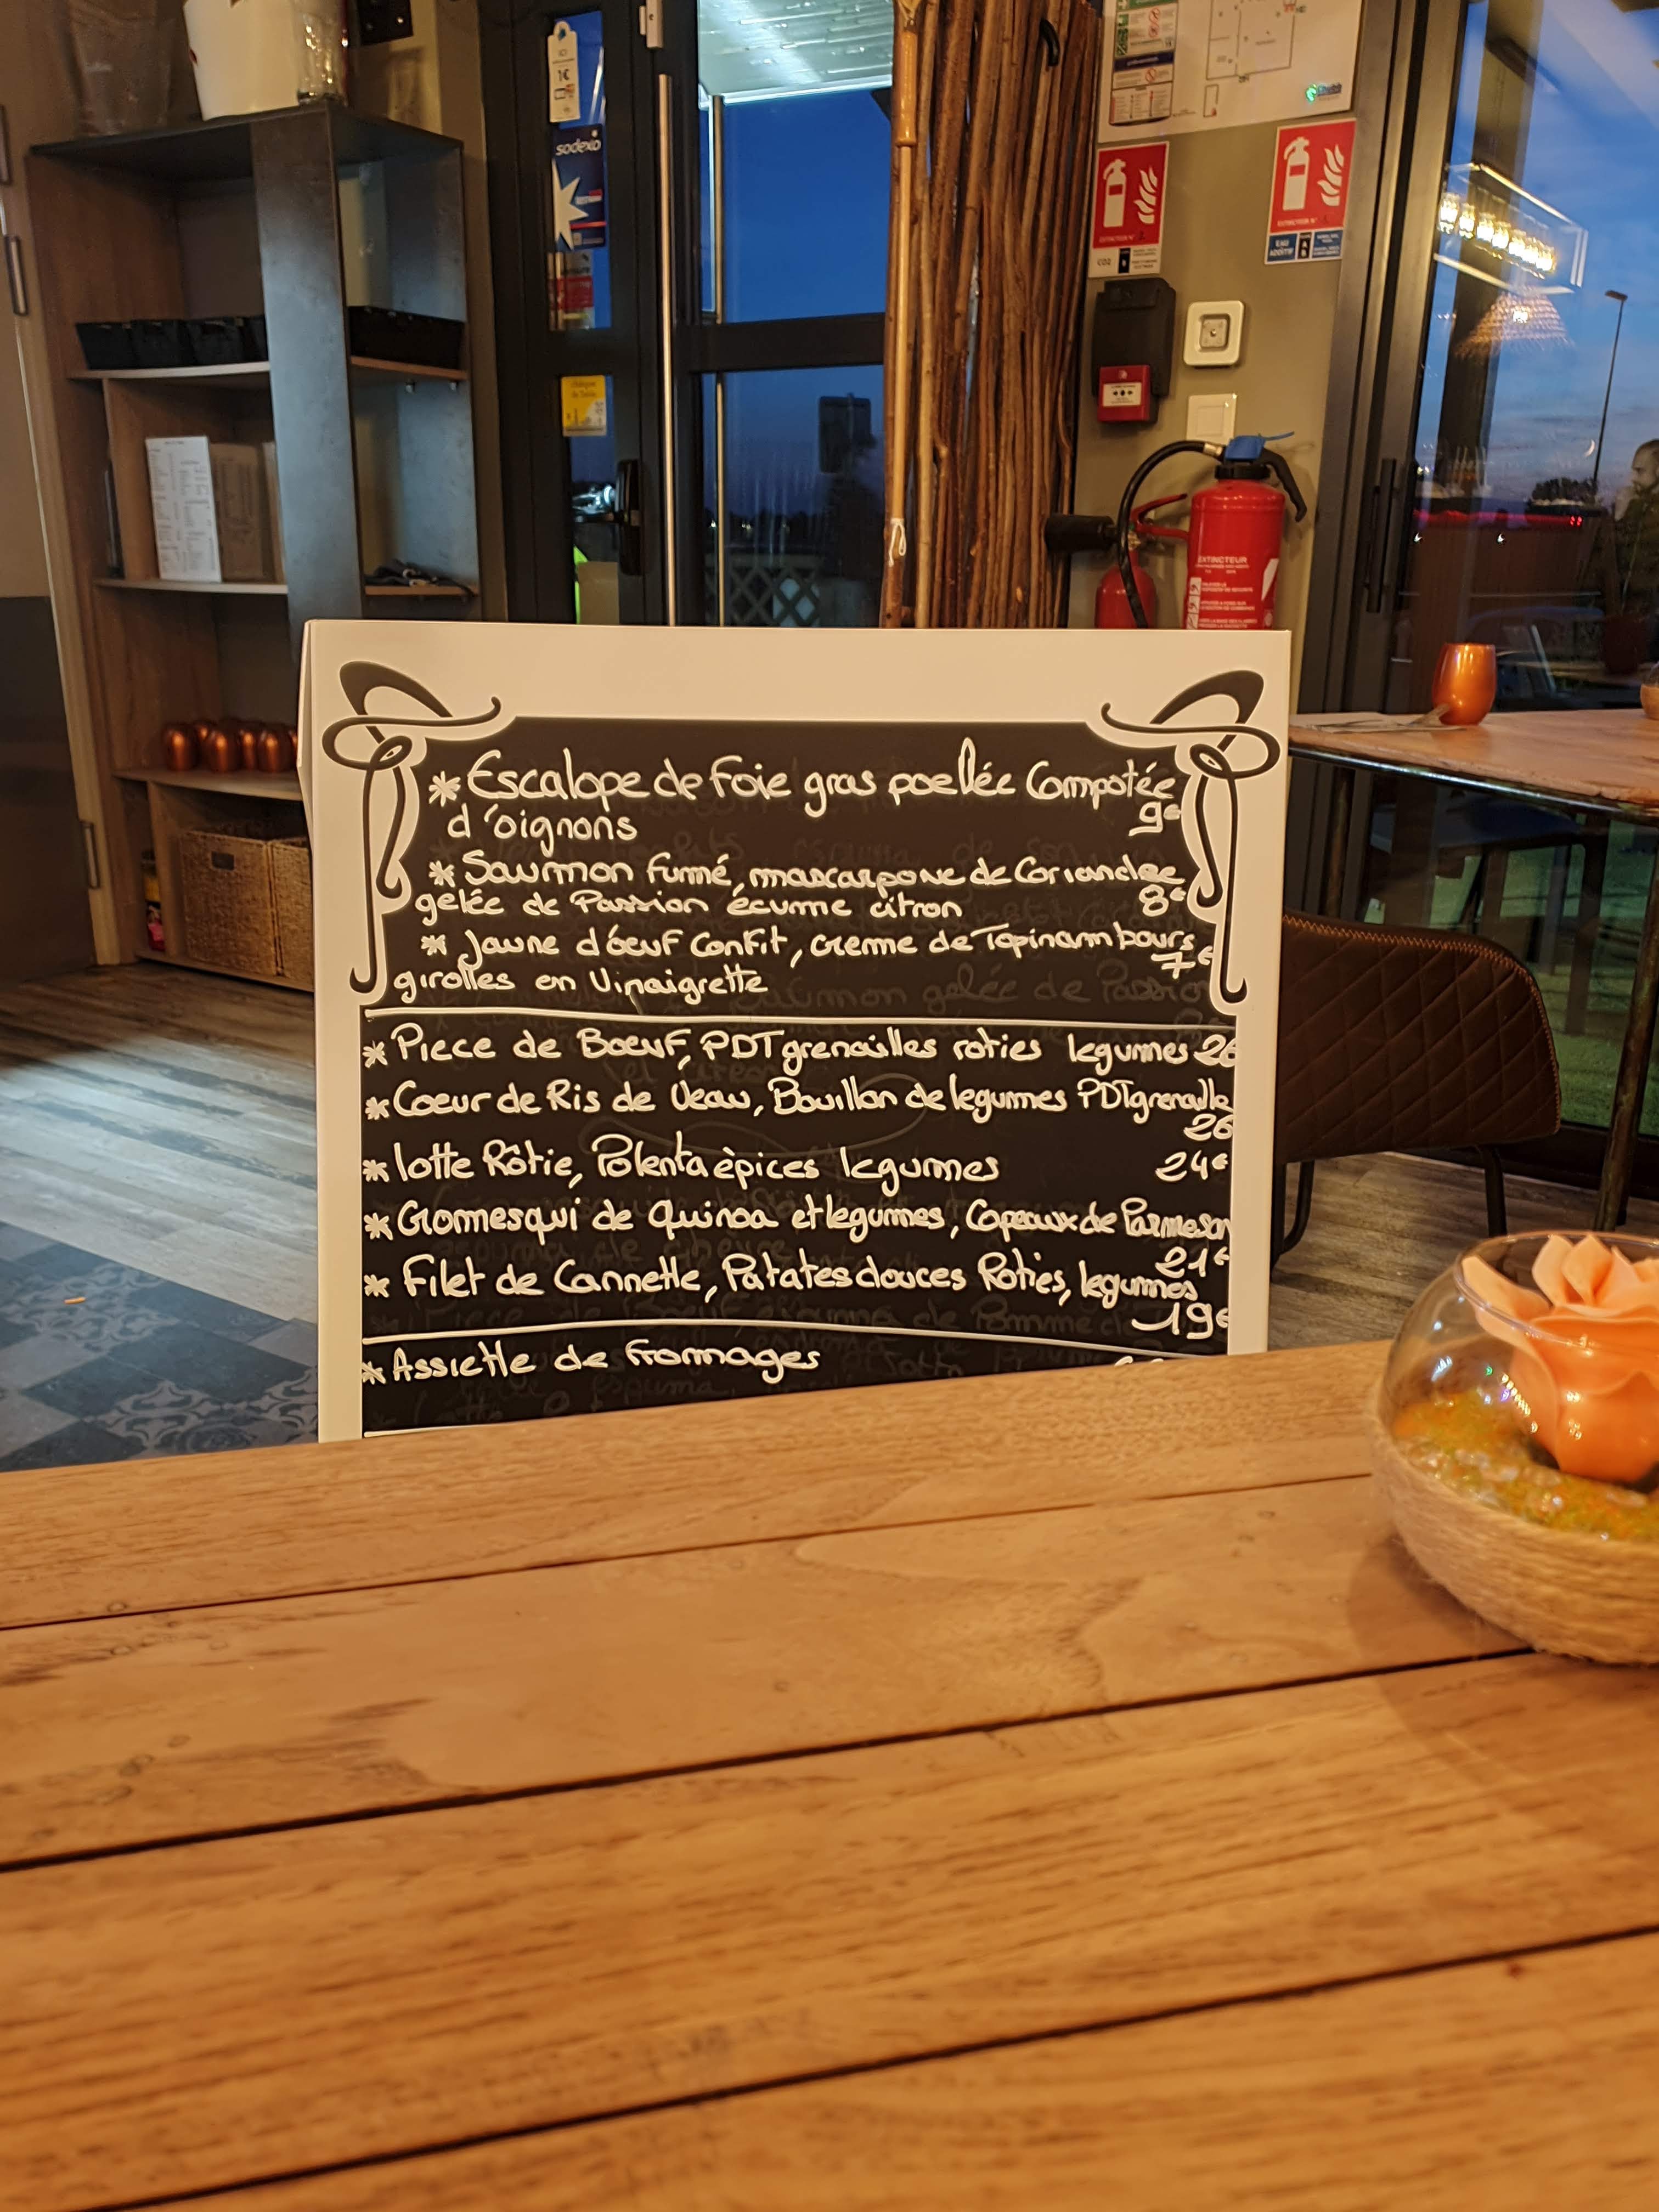 ICI
1€
sodexo
EXTINCTEUR N°
CO2
EXTINCTEUR N°
EAU
ADDITIF
A
B
EXTINCTEUR
* Escalope de Foie gras poellée Compotée
d'oignons 9€
* Saumon fumé, mascarpone de Coriandre
gelée de Passion écume citron 8€
* Jaune d'oeuf Confit, creme de Topinambours
7€
girolles en Vinaigrette
* Piece de Boeuf, PDT grenailles roties legumes 26
* Coeur de Ris de Veau, Bouillon de legumes PDT grenaille
26
* lotte Rôtie, Polenta èpices legumes 24€
* Cromesqui de Quinoa et legumes, Copeaux de Parmesan
21€
* Filet de Cannette, Patates douces Roties, legumes
19€
* Assiette de fromages